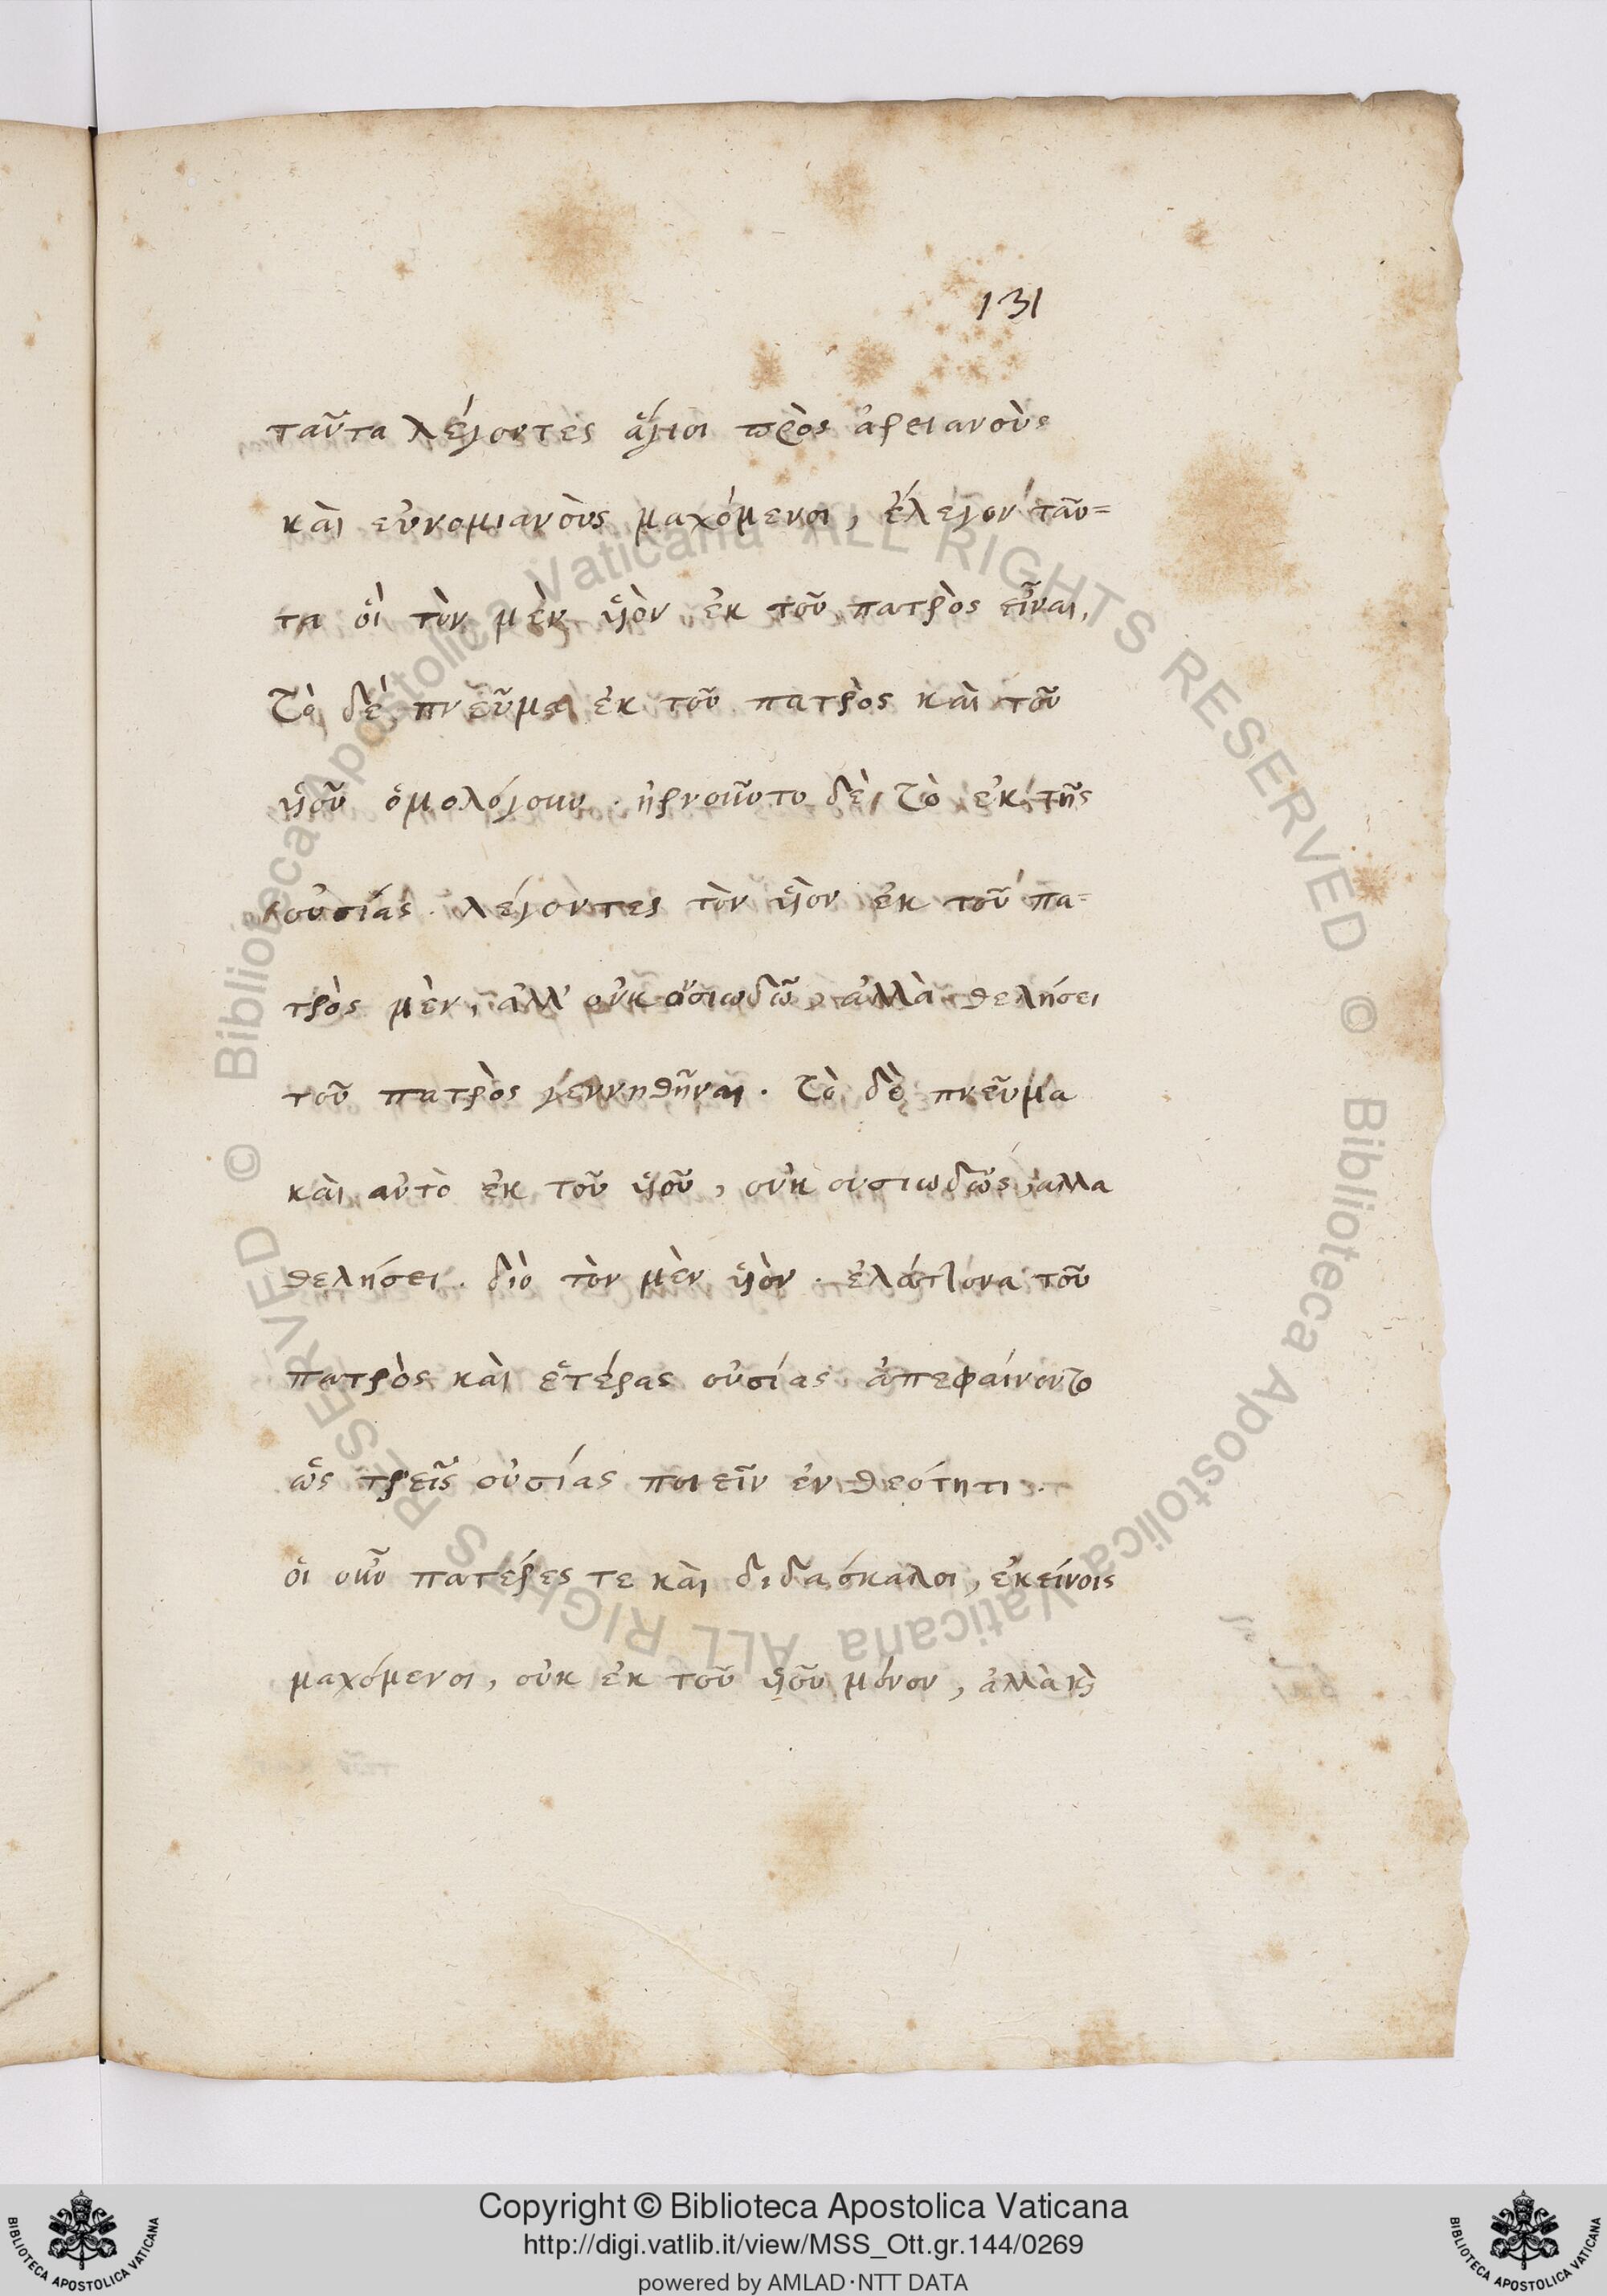 131
ταῦτα λέγοντες ἅγιοι πρὸς ἀρειανοὺς
καὶ εὐνομιανοὺς μαχόμενοι, ἔλεγον ταῦ=
τα οἳ τὸν μὲν ὑὸν ἐκ τοῦ πατρὸς εἶναι,
τὸ δὲ πνεῦμα ἐκ τοῦ πατρὸς καὶ τοῦ
ὑοῦ ὁμολόγουν. ἠρνοῦντο δὲ τὸ ἐκ τῆς
οὐσίας. λέγοντες τὸν ὑὸν ἐκ τοῦ πα=
τρὸς μὲν, ἀλλ' οὐκ, ἀλλὰ θελήσει
τοῦ πατρὸς γεννηθῆναι. τὸ δὲ πνεῦμα
καὶ αὐτὸ ἐκ τοῦ ὑοῦ, οὐκ ουσιωδῶς, αλλα
θελήσει. διὸ τὸν μὲν ὑὸν. ἐλάττονα τοῦ
πατρὸς καὶ ἑτέρας οὐσίας ἀπεφαίνοντο
ὡς τρεῖς οὐσίας ποιεῖν ἐν θεότητι.
οἱ οὖν πατέρες τε καὶ διδασκαλοι, ἐκείνοις
μαχόμενοι, οὐκ ἐκ τοῦ ὑοῦ μόνον, ἀλλὰ ϗ
© Biblioteca Apostolica Vaticana ALL RIGHTS RESERVED
© Biblioteca Apostolica Vaticana ALL RIGHTS RESERVED
Copyright © Biblioteca Apostolica Vaticana
http://digi.vatlib.it/view/MSS_Ott.gr.144/0269
powered by AMLAD·NTT DATA
BIBLIOTECA APOSTOLICA VATICANA
BIBLIOTECA APOSTOLICA VATICANA